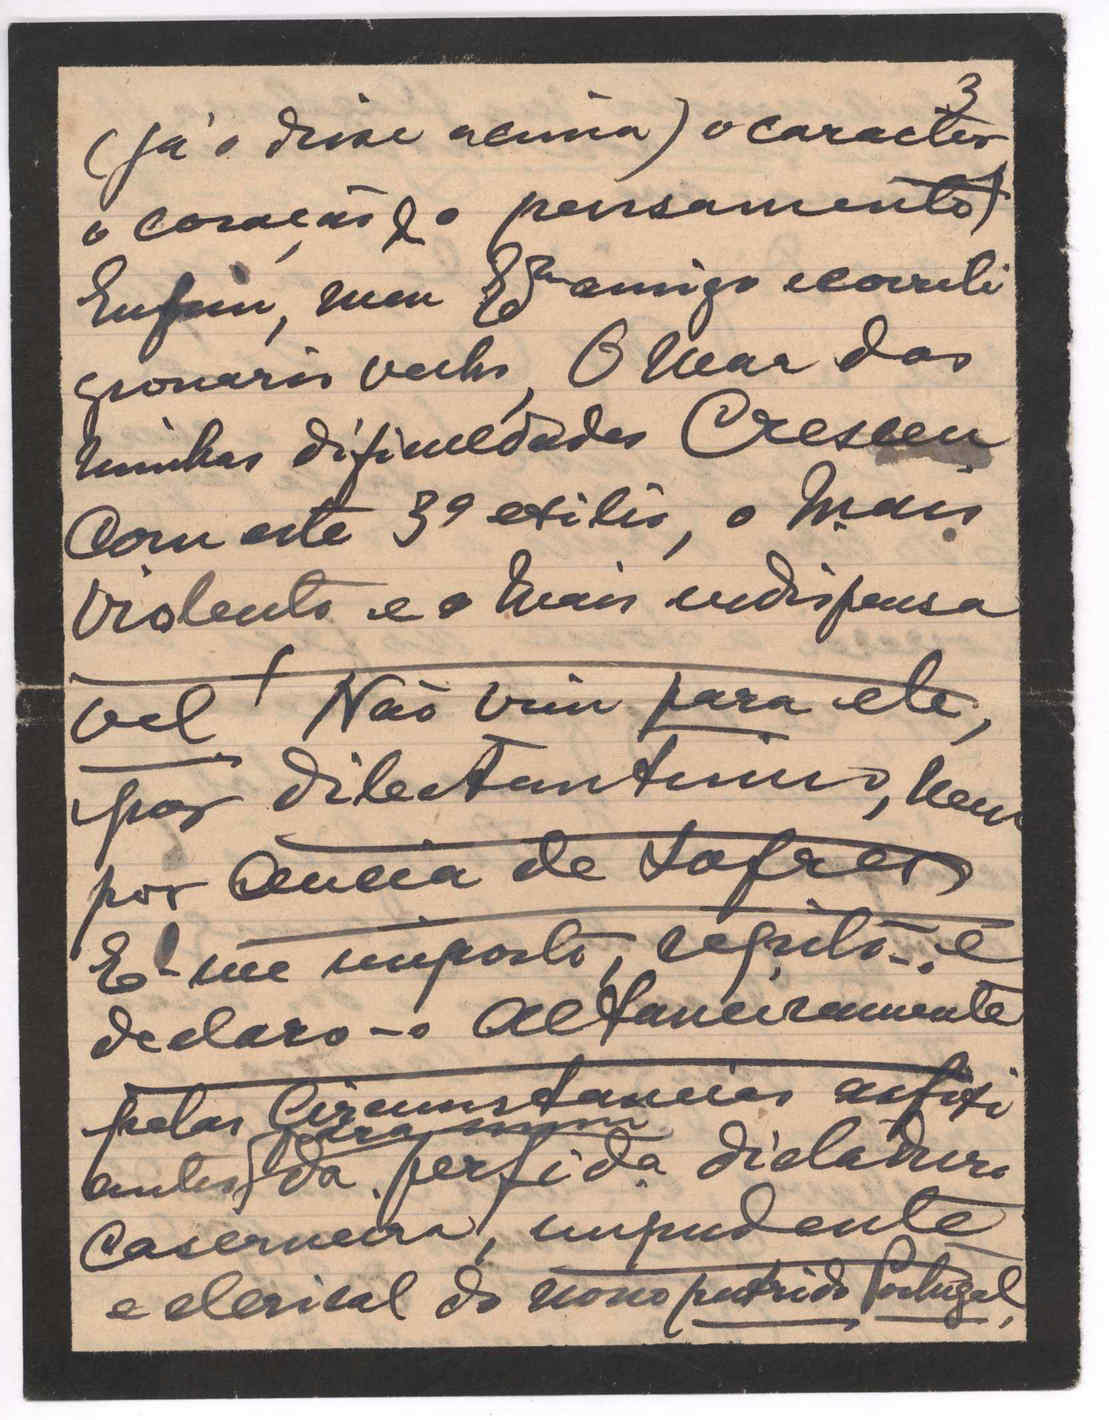 3
(Já o disse acima) o caracter
o coração e o pensamento!
Enfim, meu Exmo amigo e correli
gionario velho, O mar das
minhas dificuldades Cresceu
Com este 3º exilio, o mais
violento e o mais indispensa
vel! Não vim para ele,
por diletantismo, nem
por ancia de sofrer
É-me imposto, repito-o e
declaro-o altaneiramente
pelas Circunstancias asfixi
antes para mim
da perfida dictadura
Caserneira, impudente
e clerical do nono putrido Portugal,